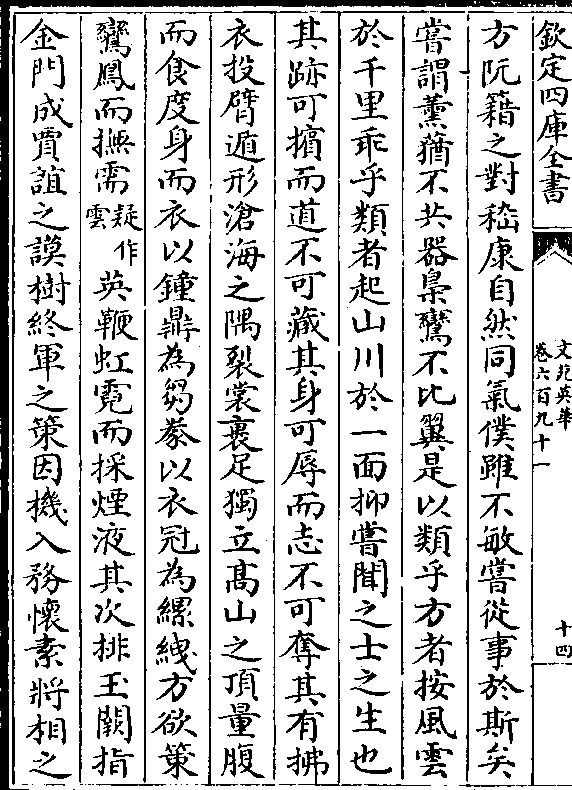 欽定四庫全書
文苑英華
卷六百九十一
十四
方阮籍之對嵇康自然同氣僕雖不敏嘗從事於斯矣
嘗謂薰蕕不共器梟鸞不比翼是以類乎方者按風雲
於千里乖乎類者起山川於一面抑嘗聞之士之生也
其跡可擯而道不可藏其身可辱而志不可奪其有拂
衣投臂遁形滄海之隅裂裳裹足獨立髙山之頂量腹
而食度身而衣以鐘鼎為芻豢以衣冠為縲絏方欲策
鸞鳳而撫需疑作雲英鞭虹霓而採煙液其次排玉闕指
金門成賈誼之謨樹終軍之策因機入務懷素將相之